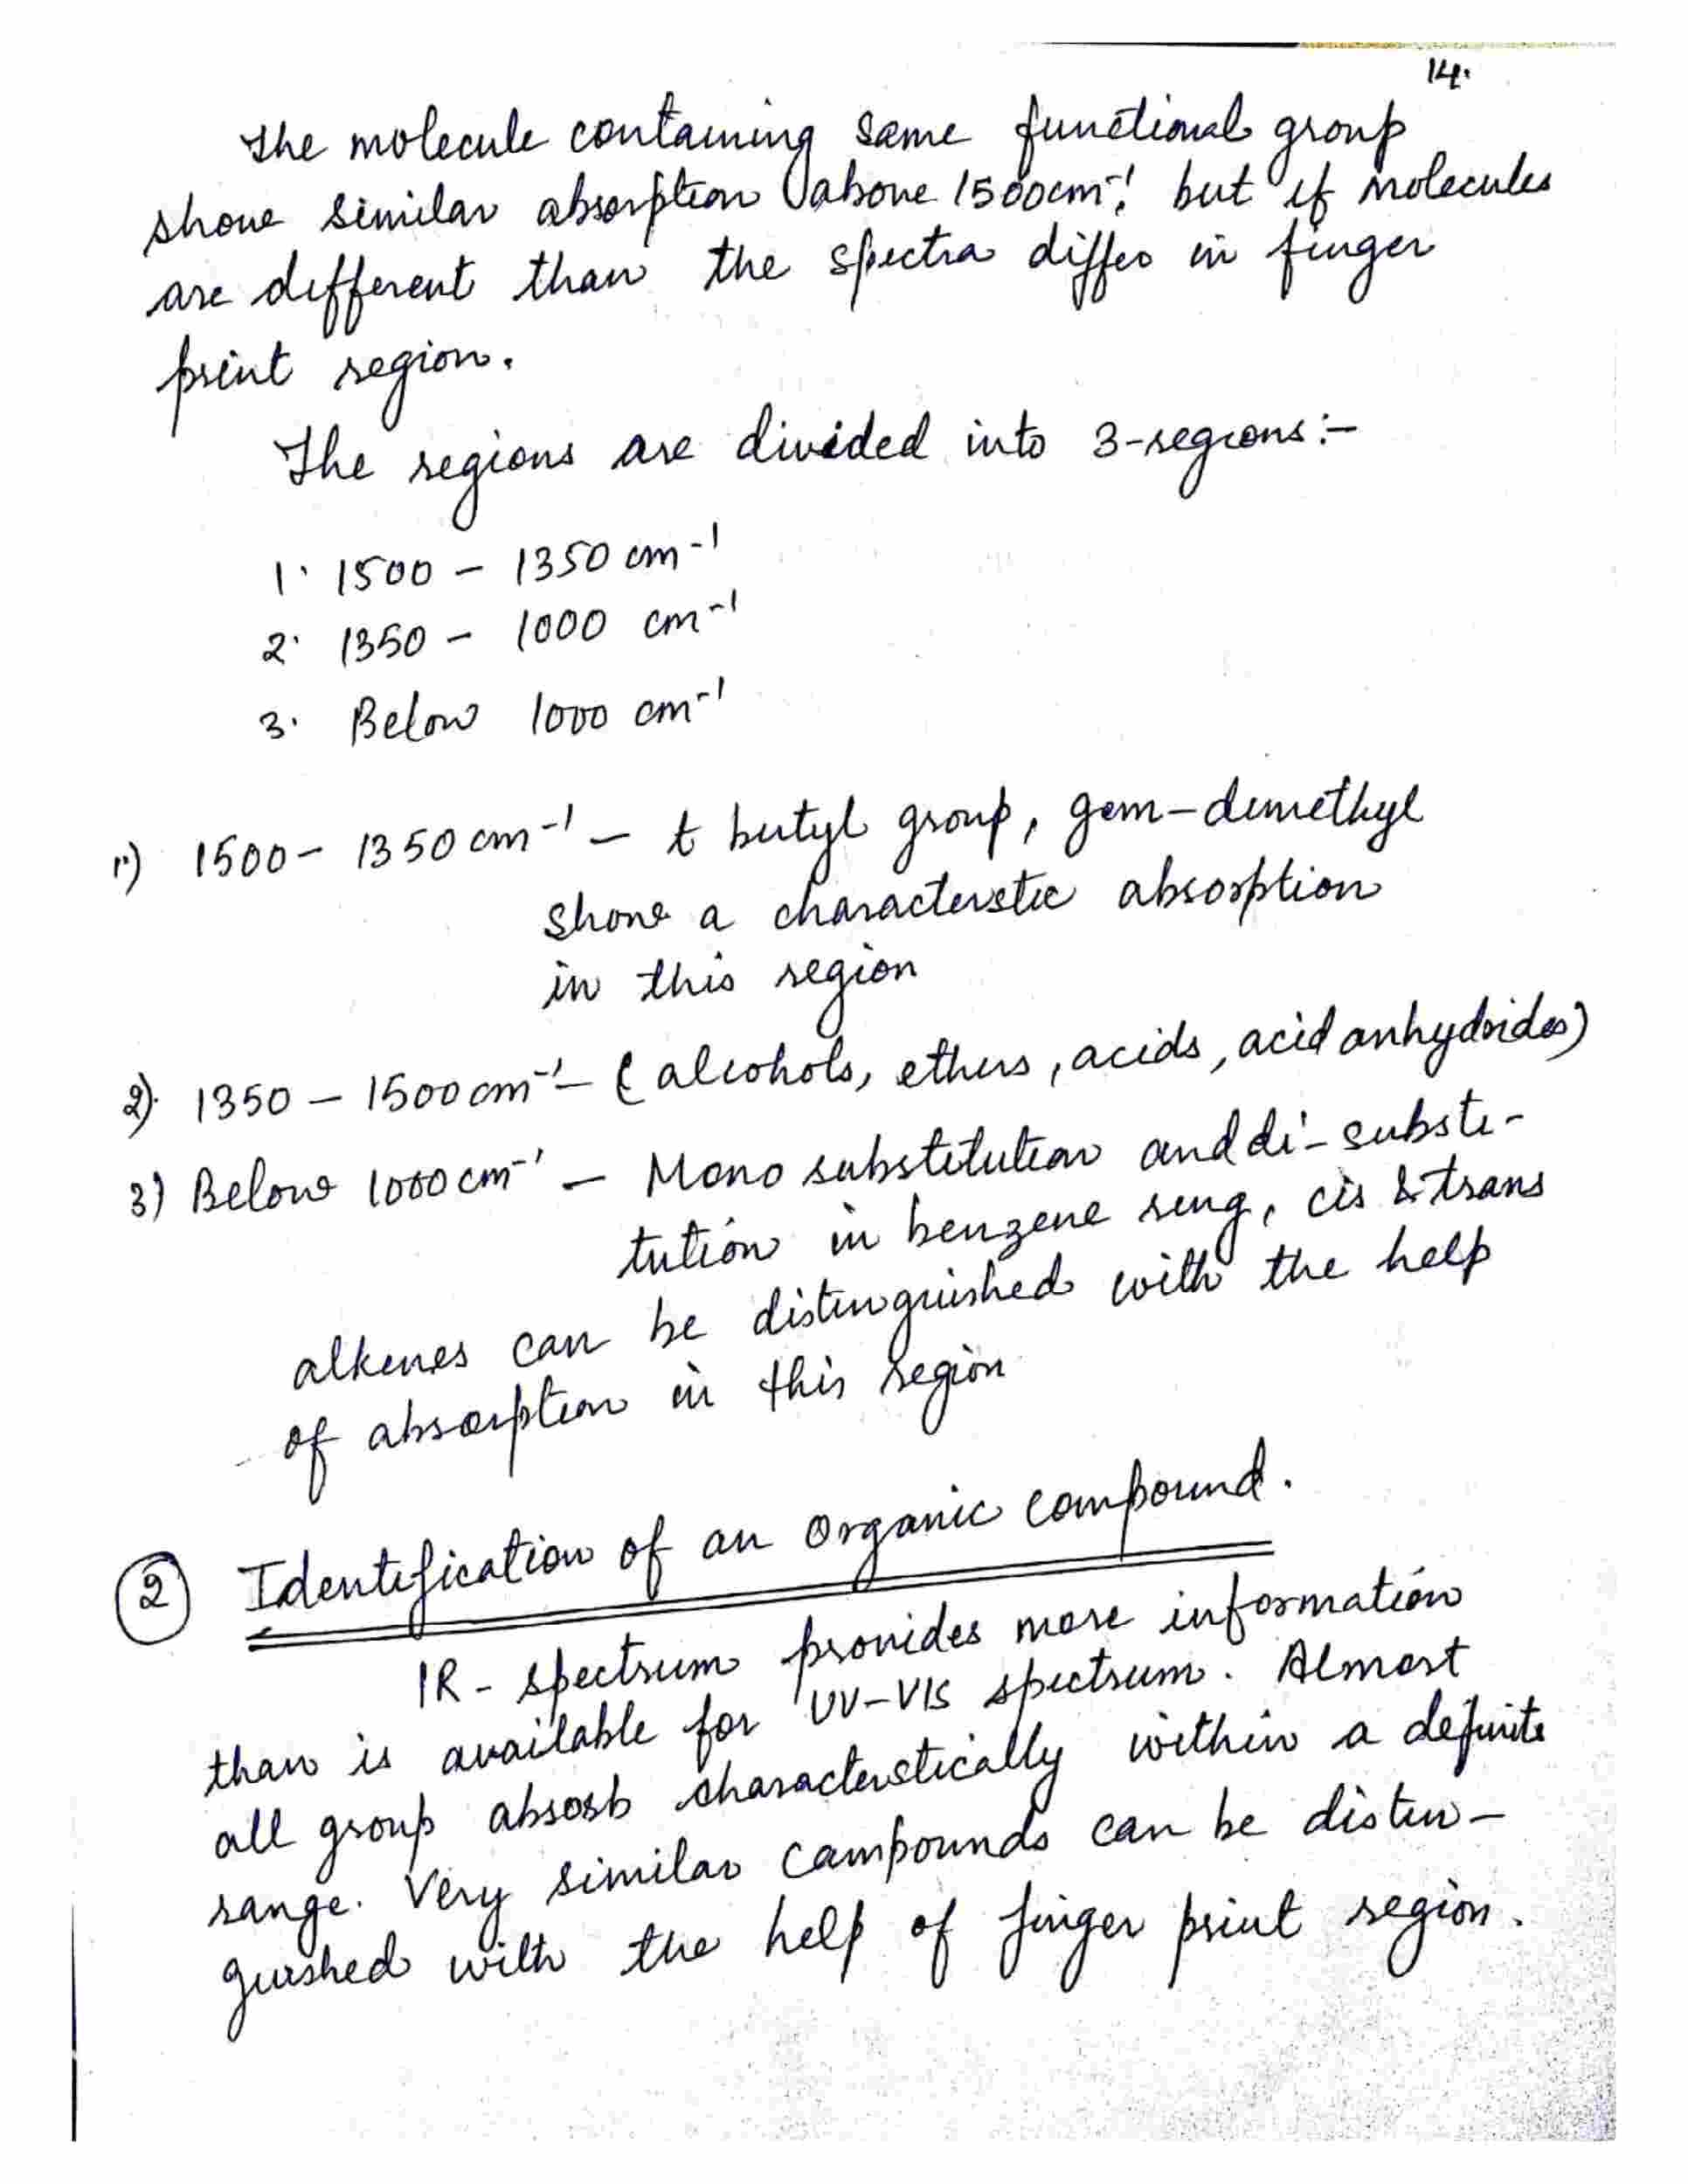 14.
The molecule containing same functional group
show similar absorption above 1500cm⁻¹. but if molecules
are different than the spectra differ in finger
print region.
The regions are divided into 3-regions:-
1. 1500 - 1350 cm⁻¹
2. 1350 - 1000 cm⁻¹
3. Below 1000 cm⁻¹
1) 1500 - 1350 cm⁻¹ - t butyl group, gem-dimethyl
show a characterstic absorption
in this region
2). 1350 - 1500 cm⁻¹ - (alcohols, ethers, acids, acid anhydrides)
3) Below 1000 cm⁻¹ - Mono substitution and di-substi-
tution in benzene ring, cis & trans
alkenes can be distinguished with the help
of absorption in this region
② Identification of an organic compound.
IR - spectrum provides more information
than is available for UV-VIS spectrum. Almost
all group absorb characterstically within a definite
range. Very similar compounds can be distin-
guished with the help of finger print region.